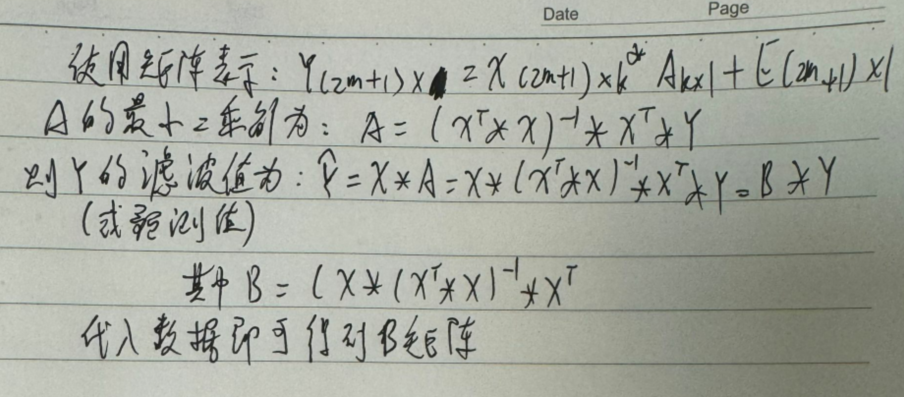 Date Page
使用矩阵表示：Y(2m+1)×1 = X(2m+1)×k * Ak×1 + E(2m+1)×1
A的最小二乘解为：A = (X^T*X)^-1 * X^T*Y
则Y的滤波值为：Ŷ = X*A = X*(X^T*X)^-1*X^T*Y = B*Y
(或预测值)
其中 B = (X*(X^T*X)^-1*X^T
代入数据即可得到B矩阵